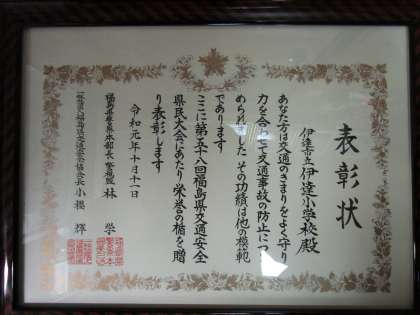 表彰状
伊達市立伊達小学校殿
あなた方は交通のきまりをよく守り
力を合わせて交通事故の防止につ
められました その功績は他の模範
であります
ここに第五十八回福島県交通安全
県民大会にあたり栄誉の楯を贈
り表彰します
令和元年十月十一日
福島県警察本部長 警視監 林 学
一般財団法人福島県交通安全協会長 小櫻 輝